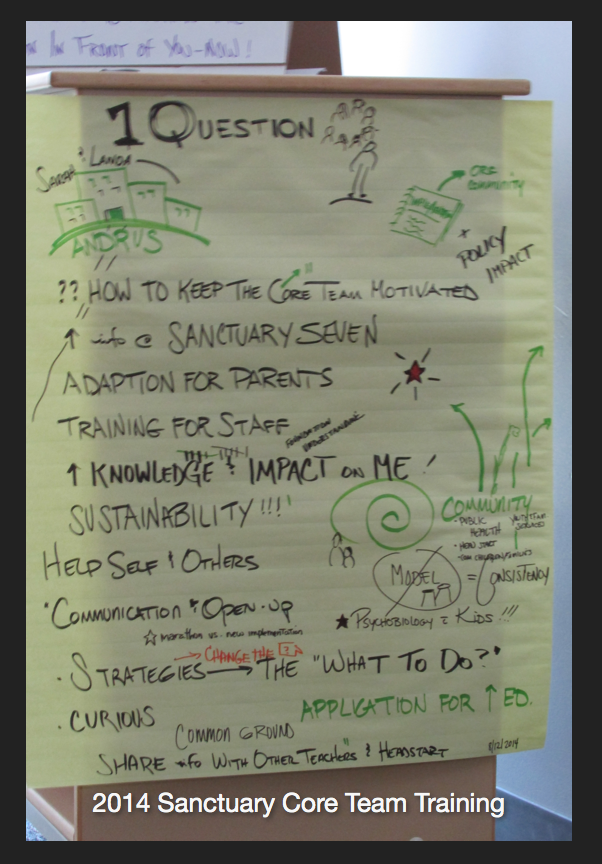 IN FRONT OF YOU-NOW!
1 QUESTION
SARAH & LANDA
ANDRUS
ORG COMMUNITY
* POLICY IMPACT
?? HOW TO KEEP THE "CORE TEAM" MOTIVATED
↑ info @ SANCTUARY SEVEN
ADAPTION FOR PARENTS
TRAINING FOR STAFF
FOUNDATION UNDERSTANDING
↑ KNOWLEDGE & IMPACT ON ME!
SUSTAINABILITY!!!
COMMUNITY
• PUBLIC HEALTH
• HEAD START
HELP SELF & OTHERS
MODEL = CONSISTENCY
• COMMUNICATION & OPEN-UP
☆ marathon vs. new implementation
★ PSYCHOBIOLOGY KIDS!!!
→ CHANGE THE ?
• STRATEGIES → THE "WHAT TO DO?"
APPLICATION FOR ↑ ED.
• CURIOUS
COMMON GROUND
SHARE info WITH OTHER TEACHERS & HEADSTART
8/12/2014
2014 Sanctuary Core Team Training